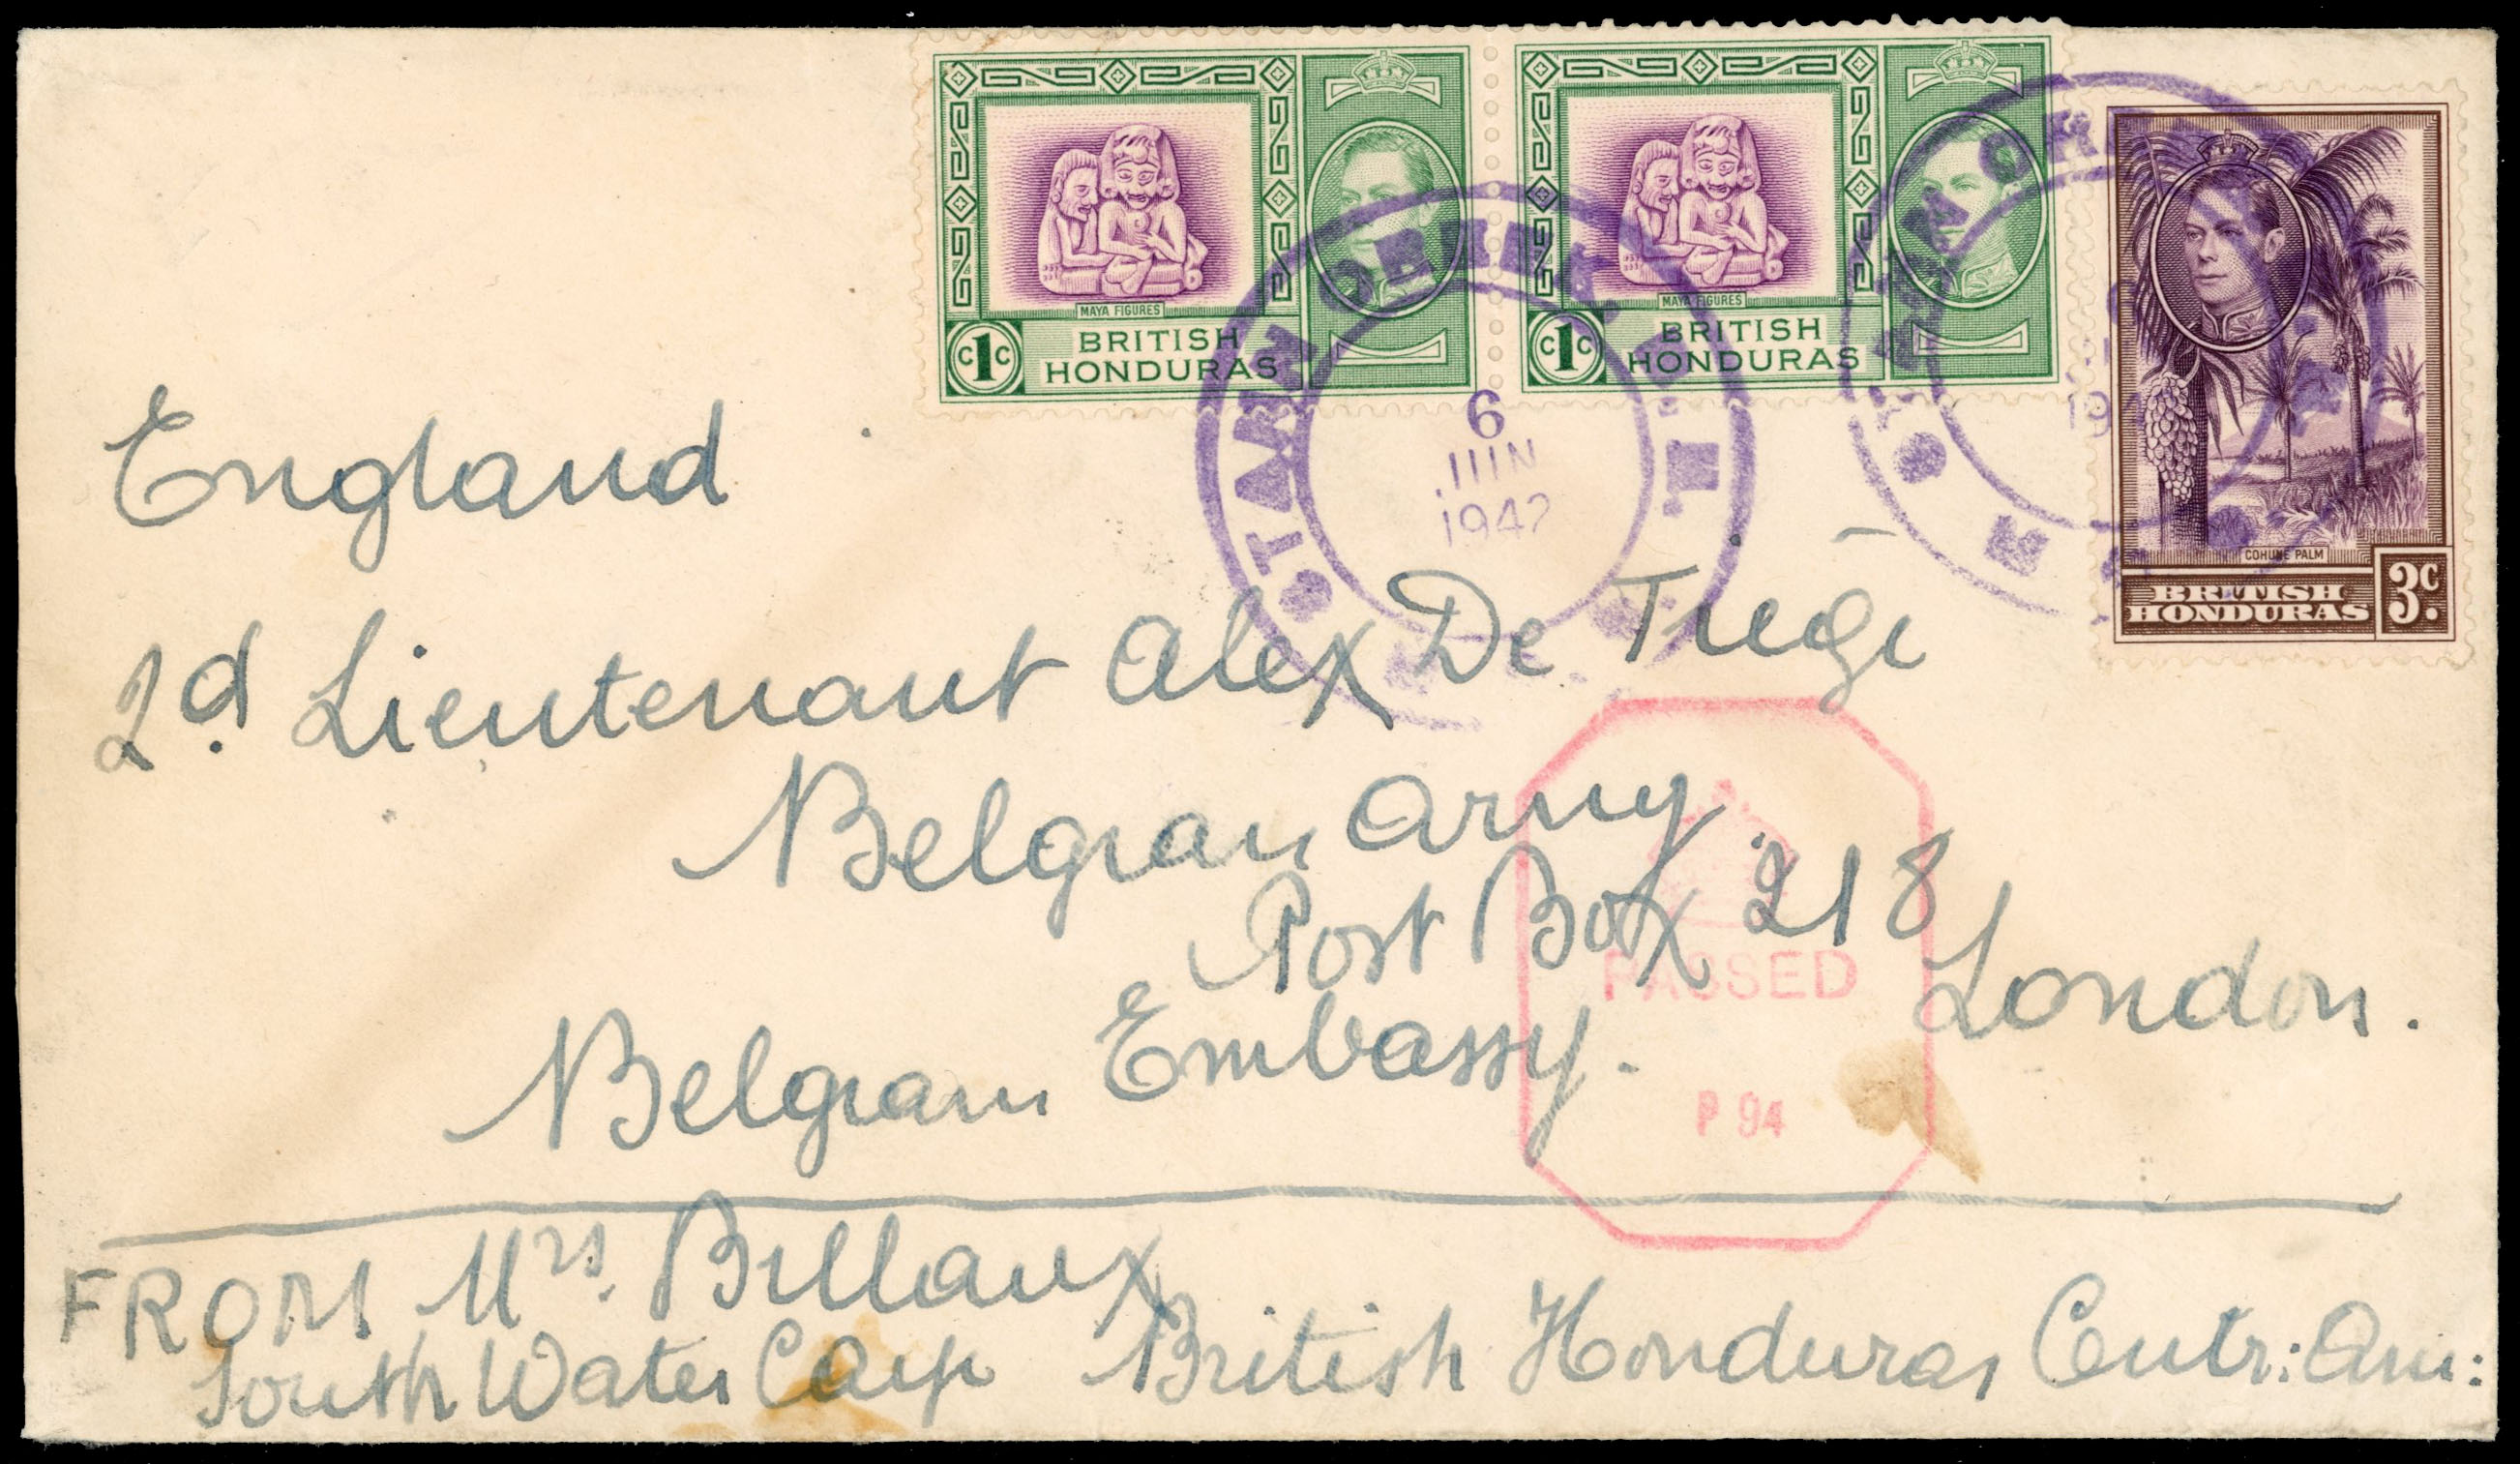 MAYA FIGURES
c1c
BRITISH HONDURAS
MAYA FIGURES
c1c
BRITISH HONDURAS
COHUNE PALM
BRITISH HONDURAS
3c.
STANN CREEK
6
JUN
1942
STANN CREEK
England
2d Lieutenant Alex De
Belgian Army
Post Box 218
London.
Belgian Embassy.
PASSED
P 94
FROM Mrs. Billaux
South Water British Honduras Centr: Am: